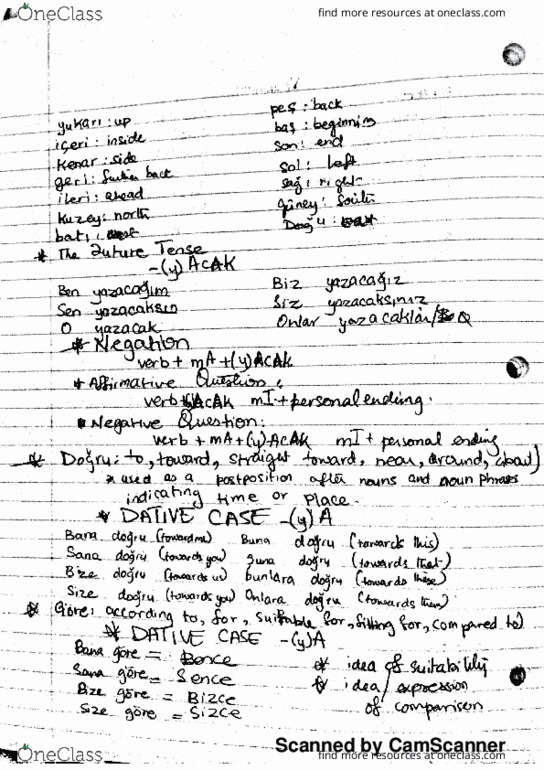 OneClass
find more resources at oneclass.com
yukarı : up
peş : back
içeri : inside
baş : beginning
Kenar : side
son : end
geri : back
sol : left
ileri : ahead
sağ : right
Kuzey : north
güney : South
batı :
Doğu :
* The Future Tense
-(y)AcAK
Ben yazacağım
Biz yazacağız
Sen yazacaksın
Siz yazacaksınız
O yazacak
Onlar yazacaklar/
* Negation
verb + mA + (y)AcAK
* Affirmative Question :
verb AcAK mI + personal ending.
* Negative Question :
verb + mA + (y)AcAK mI + personal ending
* Doğru : to, toward, straight toward, near, around, about)
* used as a postposition after nouns and noun phrases
indicating time or place.
* DATIVE CASE -(y)A
Bana doğru (toward me)
Buna doğru (towards this)
Sana doğru (towards you)
Şuna doğru (towards that)
Bize doğru (towards us)
bunlara doğru (towards these)
Size doğru (towards you)
Onlara doğru (towards them)
* Göre : according to, for, suitable for, fitting for, compared to)
* DATIVE CASE -(y)A
Bana göre = Bence
* idea of suitability
Sana göre = Sence
* idea/expression
Bize göre = Bizce
of comparison
Size göre = Sizce
Scanned by CamScanner
OneClass
find more resources at oneclass.com